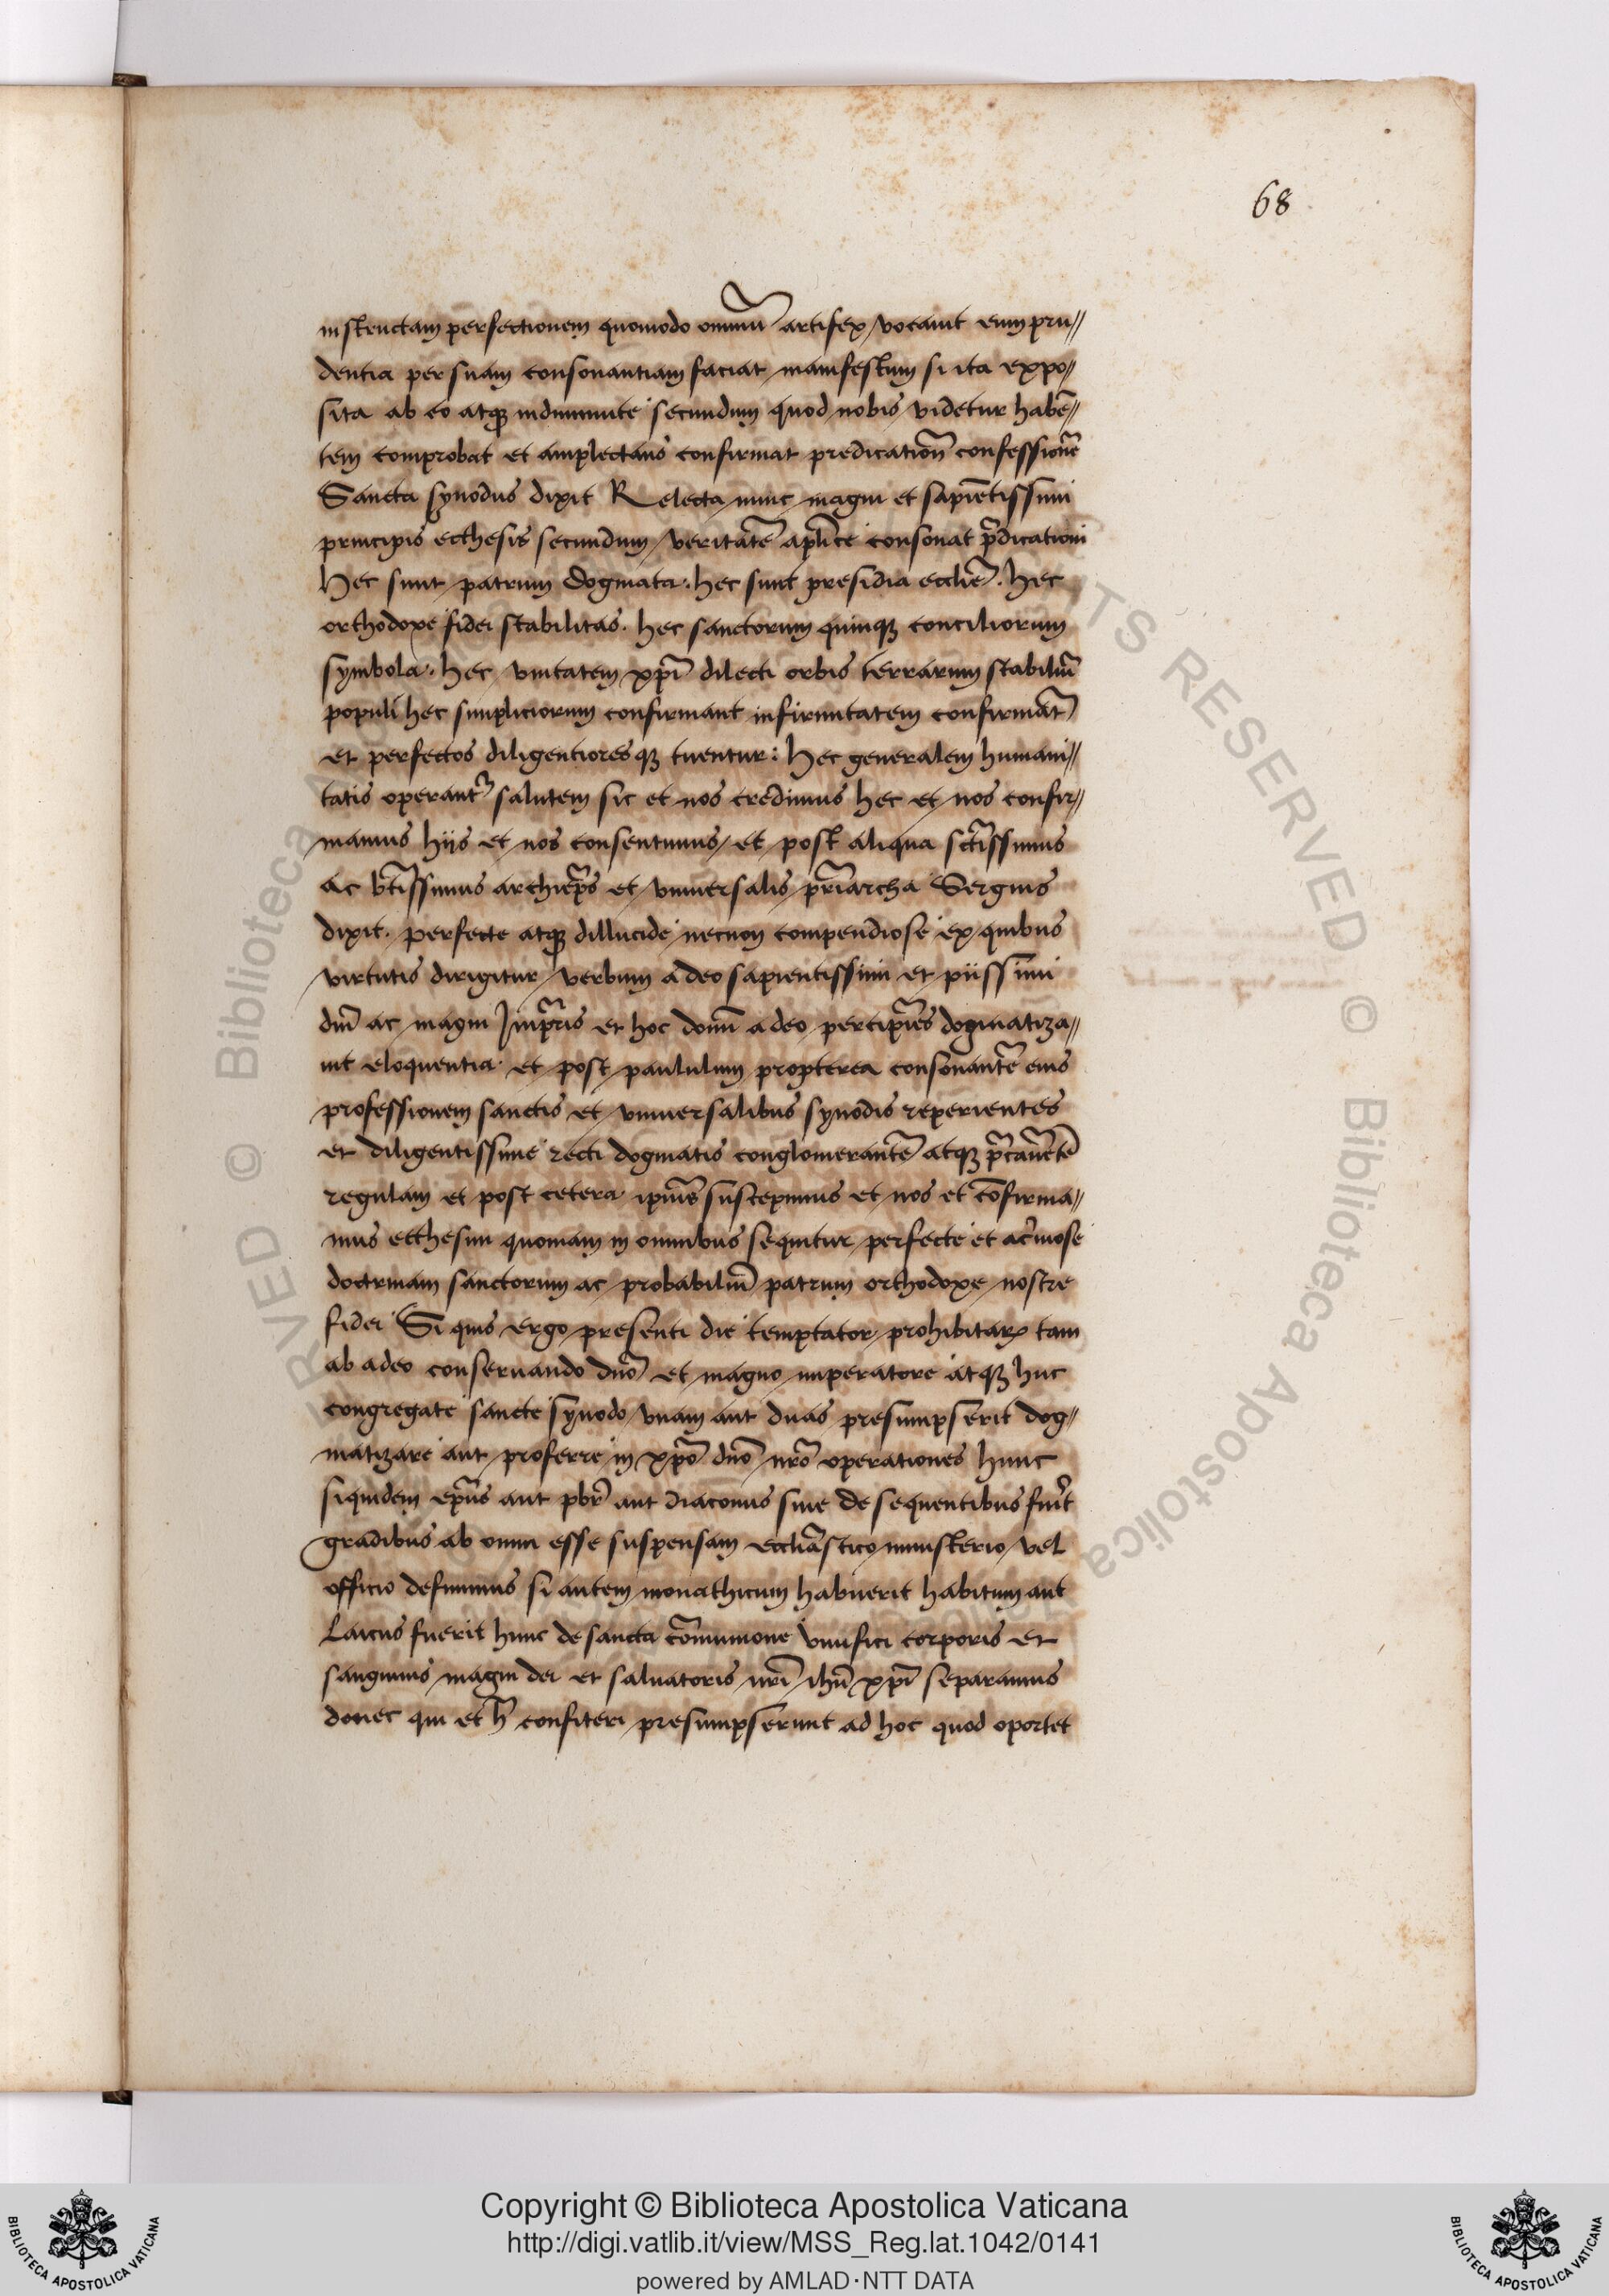 68
instructam perfectionem quomodo omniū artifex vocauit eum pru//
dentia per suam consonantiam faciat manifestum si ita expo//
sita ab eo atqȝ indiminute secundum quod nobis videtur habē//
tem comprobat et amplectans confirmat predicationē confessionē
Sancta synodus dixit Relecta nunc magni et sapiētissimi
principis ecthesis secundum veritatē aplice consonat p̄dicationi
Hec sunt patrum dogmata. hec sunt presidia ecclie. hec
orthodoxe fidei stabilitas. hec sanctorum quinqȝ conciliorum
symbola. hec vnitatem xpi dilecti orbis terrarum stabiliūt
populi hec simpliciorum confirmant infirmitatem confirmāt
et perfectos diligentioresqȝ tuentur: Hec generalem humani//
tatis operant᷑ salutem sic et nos credimus hec et nos confir//
mamus hijs et nos consentimus/ et post aliqua sctissimus
ac btissimus archieps et vniuersalis priarcha Sergius
dixit. perfecte atqȝ dillucide necnon compendiose ex quibus
virtutis dirigitur verbum a deo sapientissimi et piissimi
dni ac magni Impris et hoc donū a deo percipies dogmatiza//
uit eloquentia. et post paululum propterea consonantē eius
professionem sanctis et vniuersalibus synodis reperientes
et diligentissime recti dogmatis conglomerantē atqȝ
regulam et post cetera suscepimus et nos et cōfirma//
mus ecthesim quoniam in omnibus sequitur perfecte et
doctrinam sanctorum ac probabiliū patrum orthodoxe nostre
fidei Si quis ergo presenti die temptator prohibitarꝝ tam
ab adeo conseruando dno et magno imperatore atqȝ huc
congregate sancte synodo vnam aut duas presumpserit dog//
matizare aut proferre in xpo dno nro operationes hunc
siquidem epus aut pbr aut diaconus siue de sequentibus fuit
gradibus ab omni esse suspensam eccliastico ministerio vel
officio definimus si autem monathicum habuerit habitum aut
Laicus fuerit hunc de sancta cōmunione viuifici corporis et
sanguinis magni dei et saluatoris nri ihu xpi separamus
donec qui et h̄ confiteri presumpserunt ad hoc quod oportet
Copyright © Biblioteca Apostolica Vaticana
http://digi.vatlib.it/view/MSS_Reg.lat.1042/0141
powered by AMLAD·NTT DATA
BIBLIOTECA APOSTOLICA VATICANA
BIBLIOTECA APOSTOLICA VATICANA